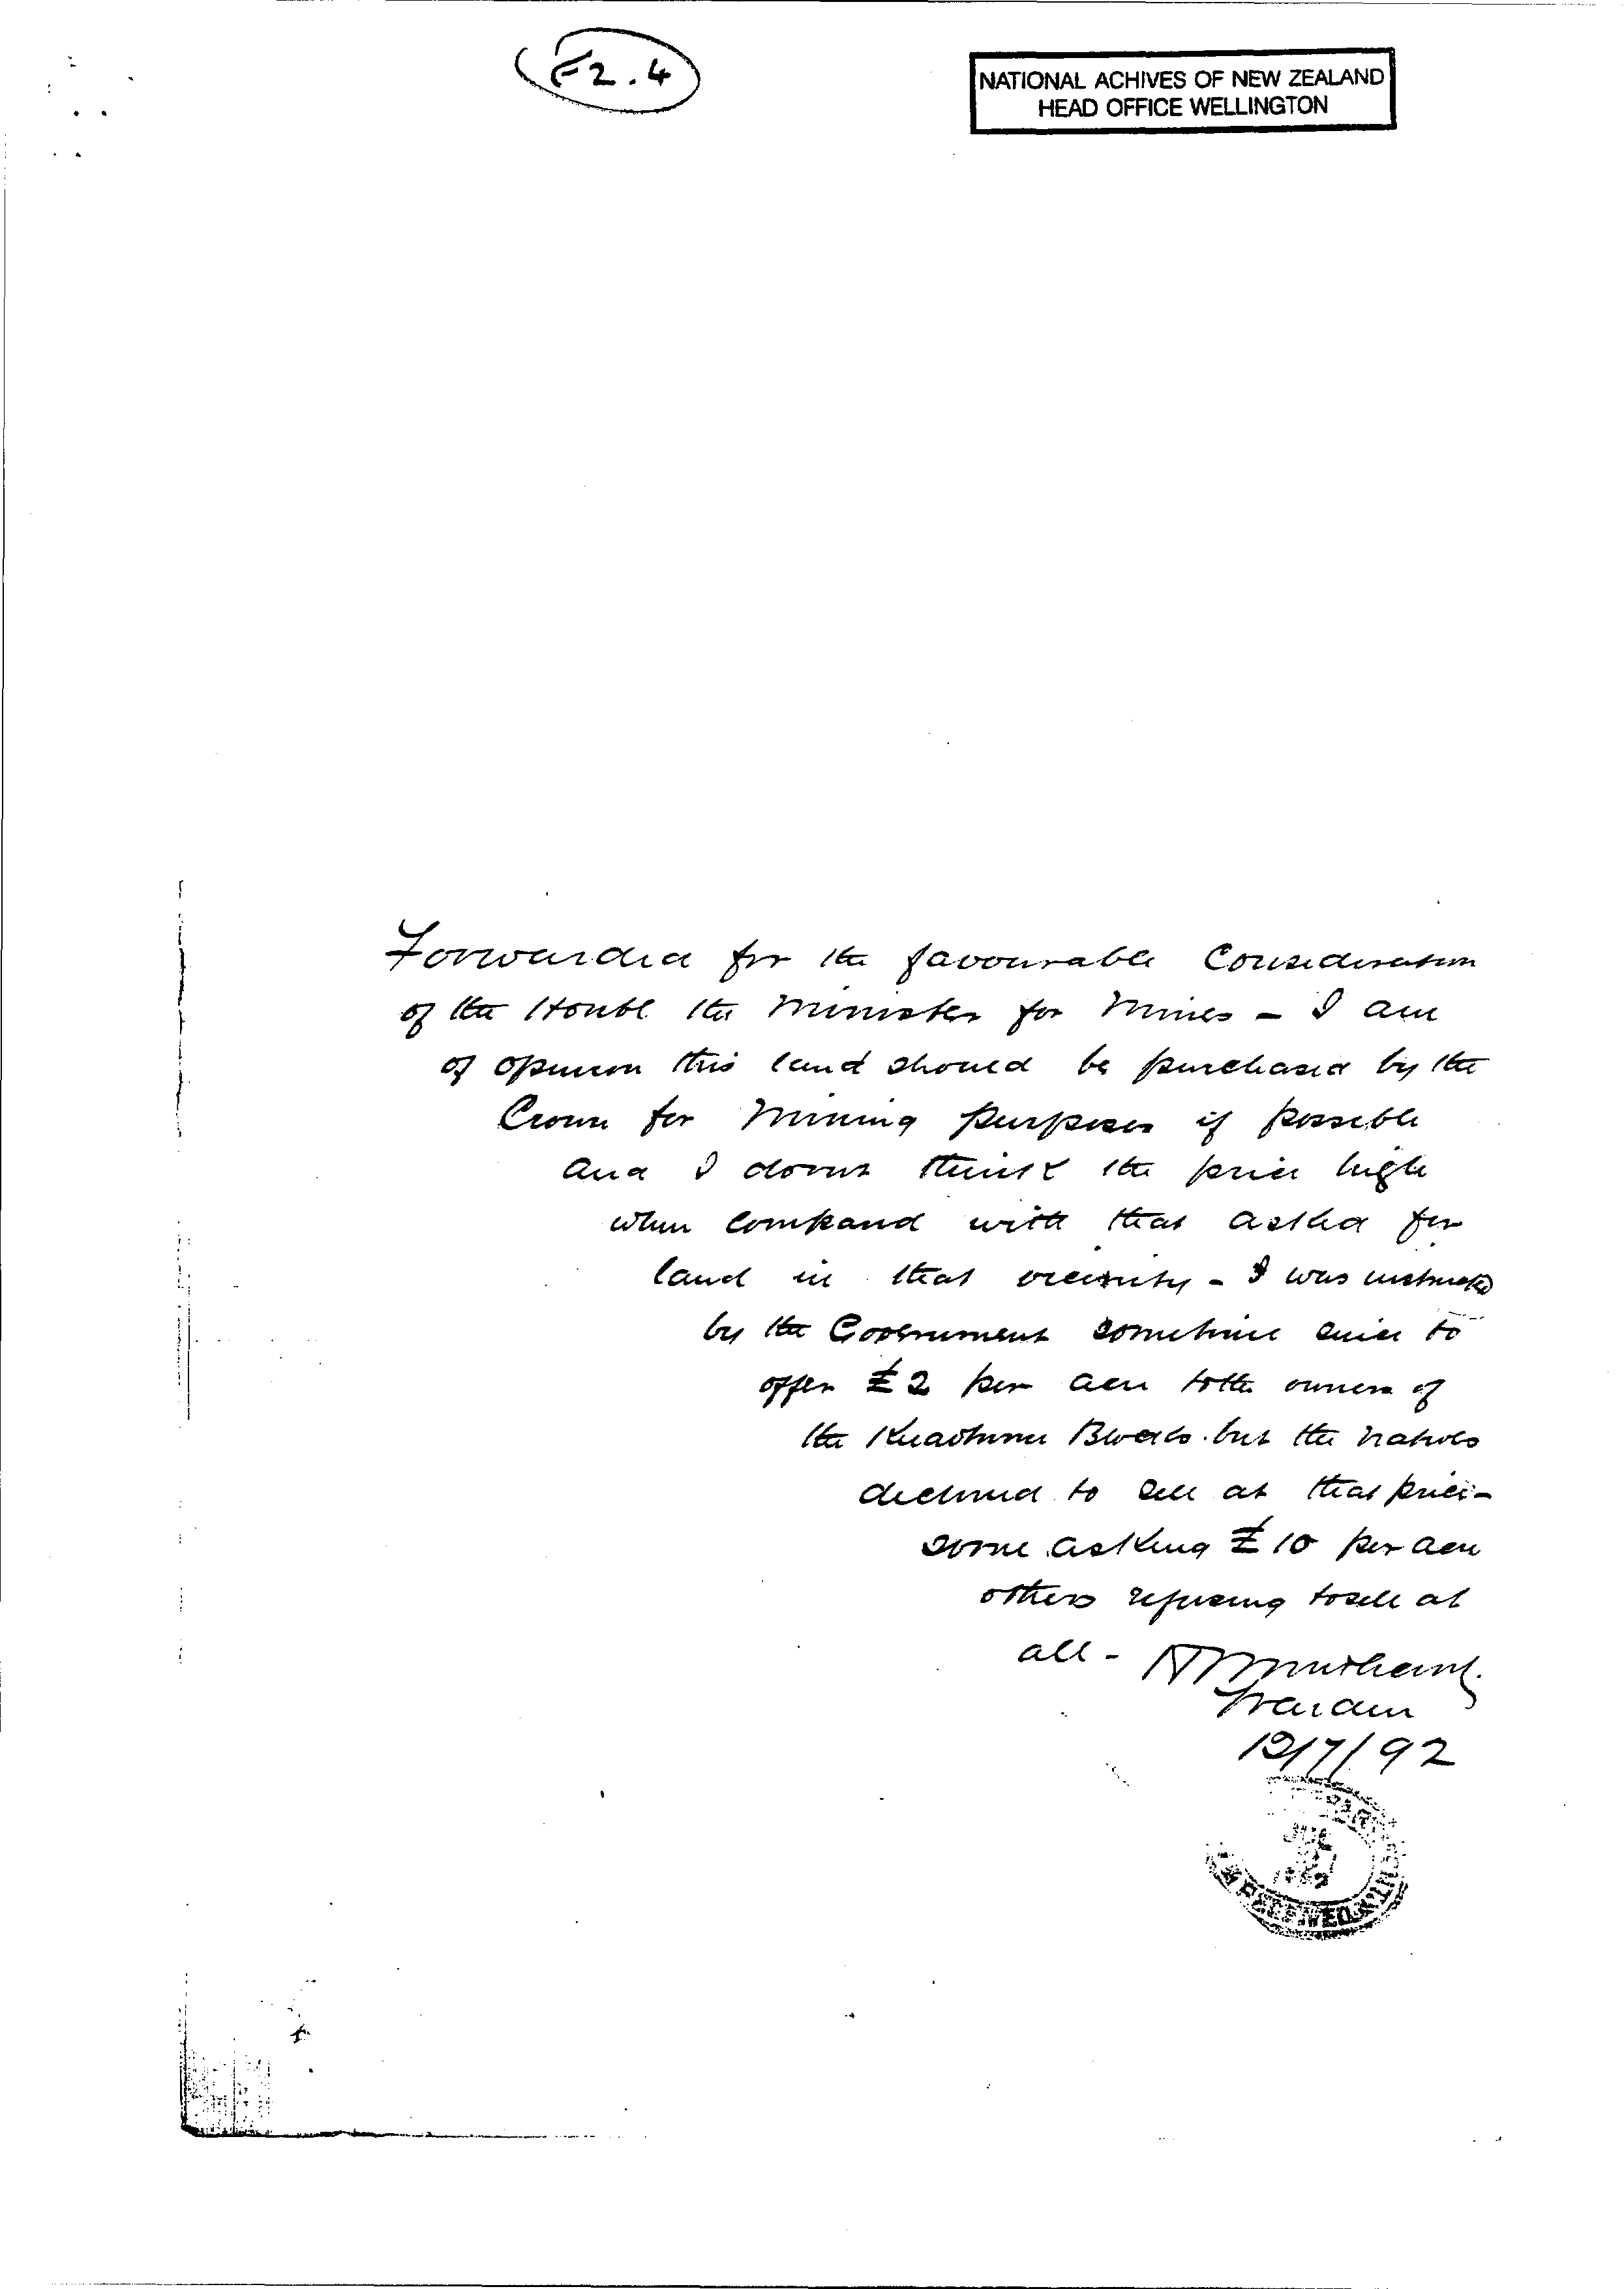 E2.4
NATIONAL ACHIVES OF NEW ZEALAND
HEAD OFFICE WELLINGTON
Forwarded for the favourable Consideration
of the Honbl the Minister for Mines - I am
of opinion this land should be purchased by the
Crown for Mining purposes if possible
and I dont think the price high
when compared with that asked for
land in that vicinity - I was instructed
by the Government sometime since to
offer £2 per acre to the owners of
the Kuaotunu Blocks but the natives
declined to sell at that price -
some asking £10 per acre
others refusing to sell at
all -
12/7/92
RECEIVED